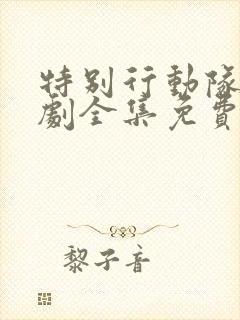 特别行動隊
劇全集免費
黎子音